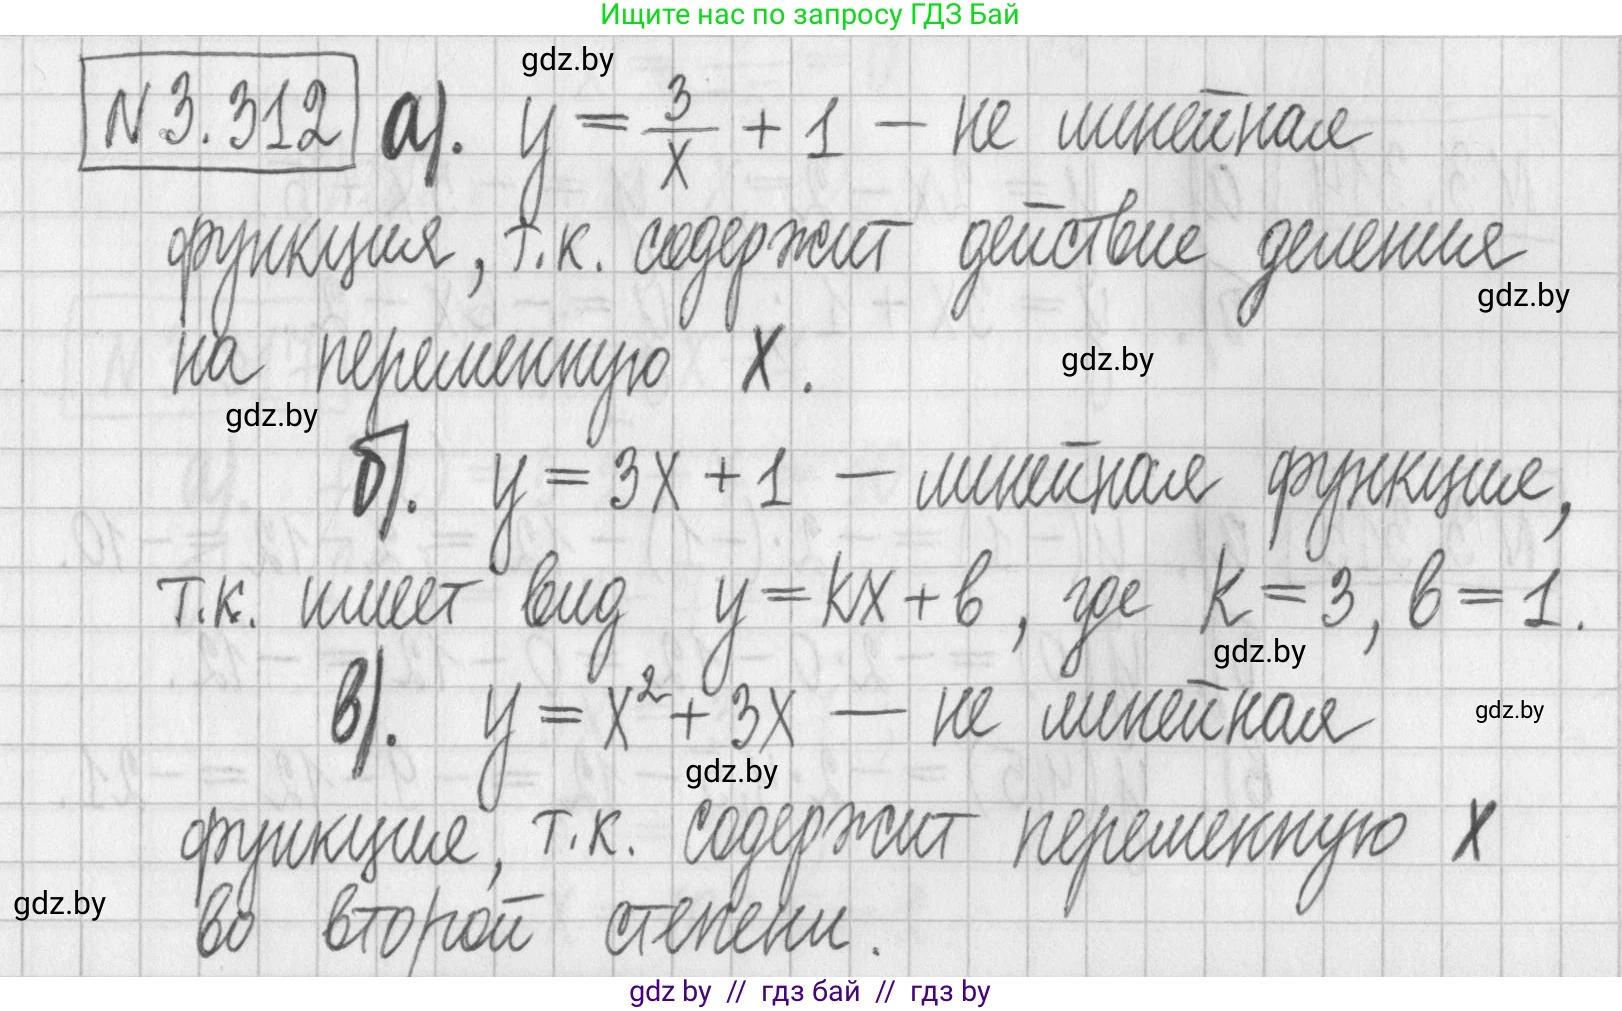 Ищите нас по запросу ГДЗ Бай
gdz.by
N 3.312 а). y = 3/x + 1 – не линейная
функция, т.к. содержит действие деления
gdz.by
на переменную x.
gdz.by
gdz.by
б). y = 3x + 1 – линейная функция,
т.к. имеет вид y = kx + b, где k = 3, b = 1.
gdz.by
в). y = x² + 3x – не линейная
gdz.by
gdz.by
функция, т.к. содержит переменную x
gdz.by
во второй степени.
gdz by // гдз бай // гдз by